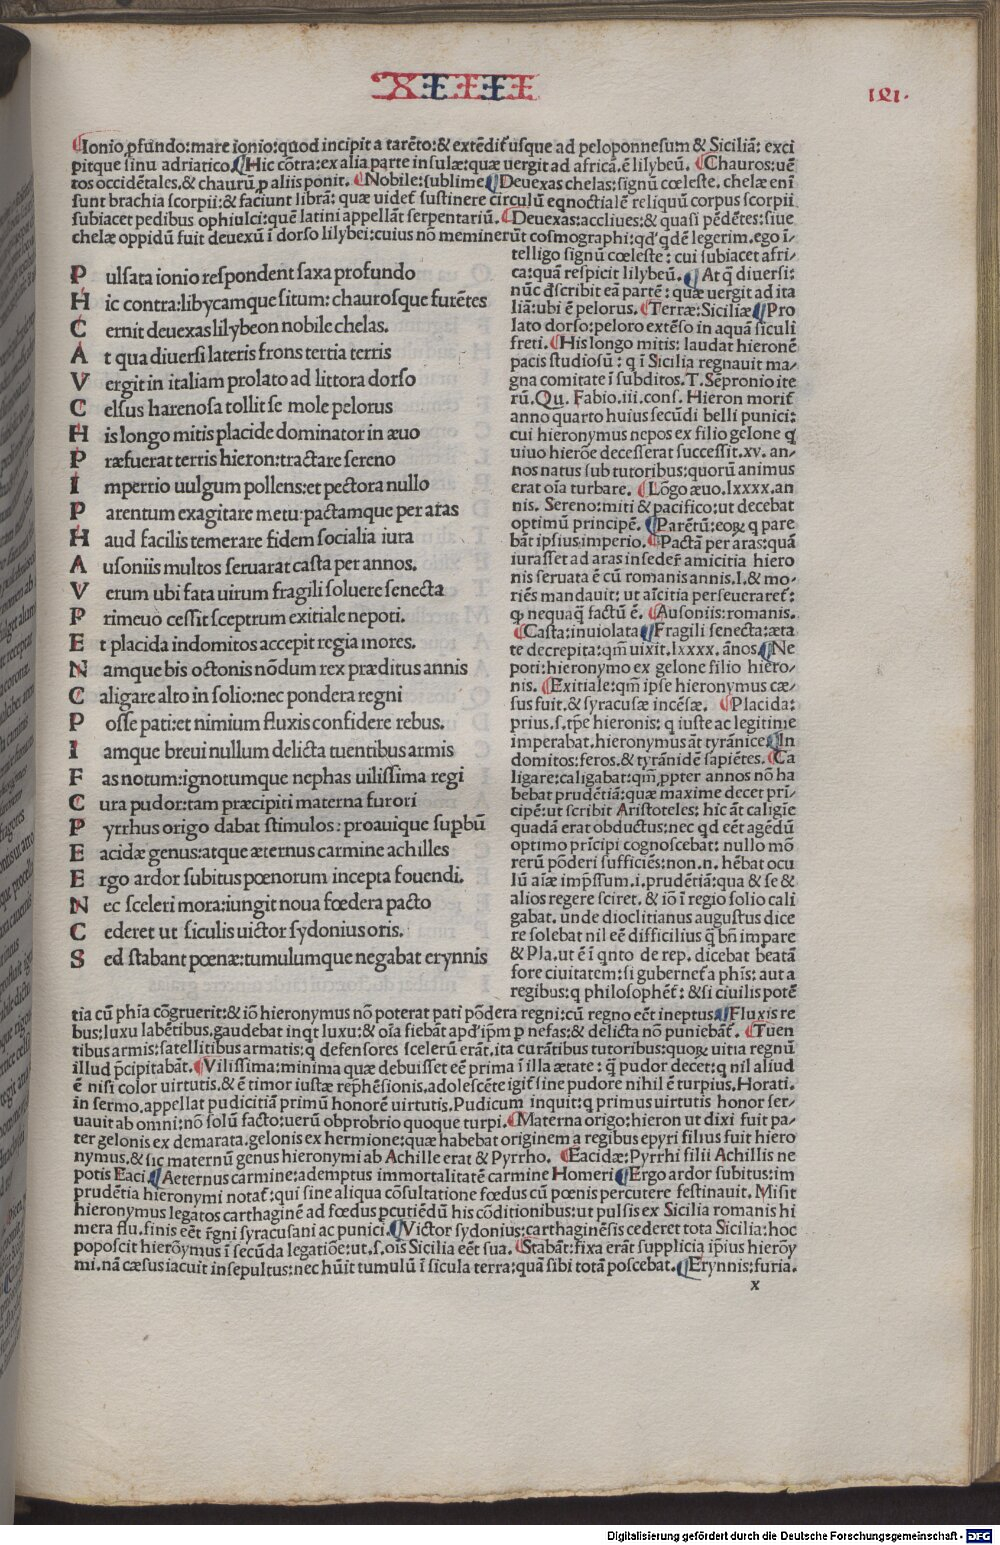 XIIII
Ionio ꝓfundo:mare ionio:quod incipit a tarēto:& extēdit᷑ usque ad peloponnesum & Siciliā: exci
pitque sinu adriatico. Hic cōtra:ex alia parte insulæ:quæ uergit ad africā.ē lilybeū. Chauros:uē
tos occidētales.& chaurū ꝓ aliis ponit. Nobile:sublime. Deuexas chelas:signū cœleste. chelæ enī
sunt brachia scorpii:& faciunt librā: quæ uidet᷑ sustinere circulū eqnoctialē reliquū corpus scorpii
subiacet pedibus ophiulci:quē latini appellāt serpentariū. Deuexas:accliues:& quasi pēdētes:siue
chelæ oppidū fuit deuexū ī dorso lilybei:cuius nō meminerūt cosmographi:qd' qdē legerim.ego ī-
P ulsata ionio respondent saxa profundo
H ic contra:libycamque situm: chaurosque furētes
C ernit deuexas lilybeon nobile chelas.
A t qua diuersi lateris frons tertia terris
V ergit in italiam prolato ad littora dorso
C elsus harenosa tollit se mole pelorus
H is longo mitis placide dominator in æuo
P ræfuerat terris hieron:tractare sereno
I mperrio uulgum pollens:et pectora nullo
P arentum exagitare metu·pactamque per aras
H aud facilis temerare fidem socialia iura
A usoniis multos seruarat casta per annos.
V erum ubi fata uirum fragili soluere senecta
P rimeuo cessit sceptrum exitiale nepoti.
E t placida indomitos accepit regia mores.
N amque bis octonis nōdum rex præditus annis
C aligare alto in solio:nec pondera regni
P osse pati:et nimium fluxis confidere rebus.
I amque breui nullum delicta tuentibus armis
F as notum:ignotumque nephas uilissima regi
C ura pudor:tam præcipiti materna furori
P yrrhus origo dabat stimulos: proauique supbū
E acidæ genus:atque æternus carmine achilles
E rgo ardor subitus pœnorum incepta fouendi.
N ec sceleri mora:iungit noua fœdera pacto
C ederet ut siculis uictor sydonius oris.
S ed stabant pœnæ:tumulumque negabat erynnis
telligo signū cœleste: cui subiacet afri-
ca:quā respicit lilybeū. At q̄ diuersi:
nūc dscribit eā partē: quæ uergit ad ita
liā:ubi ē pelorus. Terræ:Siciliæ. Pro
lato dorso:peloro extēso in aquā siculi
freti. His longo mitis: laudat hieronē
pacis studiosū: q ī Sicilia regnauit ma-
gna comitate ī subditos.T.Sēpronio ite
rū.Qu. Fabio.iii.cons. Hieron morit᷑
anno quarto huius secūdi belli punici:
cui hieronymus nepos ex filio gelone q
uiuo hierōe decesserat successit.xv. an-
nos natus sub tutoribus:quorū animus
erat oīa turbare. Lōgo æuo.lxxxx.an
nis. Sereno:miti & pacifico:ut decebat
optimū principē. Parētū:eoꝝ q pare
bāt ipsius imperio. Pactā per aras:quā
iurasset ad aras insedeř amicitia hiero
nis seruata ē cū romanis annis.l.& mo-
riēs mandauit: ut aīcitia perseueraret᷑:
qꝫ nequaq̄ factū ē. Ausoniis:romanis.
Casta:inuiolata. Fragili senecta:æta
te decrepita:qm̄ uixit.lxxxx.ānos. Ne
poti:hieronymo ex gelone filio hiero-
nis. Exitiale:qm̄ ipse hieronymus cæ-
sus fuit.& syracusæ incēsæ. Placida:
prius.s.tp̄e hieronis: q iuste ac legitime
imperabat.hieronymus āt tyrānice. In
domitos:feros.& tyrānidē sapiētes. Ca
ligare:caligabat:qm̄ ꝓpter annos nō ha
bebat prudētiā:quæ maxime decet pri-
cipē:ut scribit Aristoteles: hic āt caligīe
quadā erat obductus:nec qd eēt agēdū
optimo prīcipi cognoscebat: nullo mō
rerū pōderi sufficiēs:non.n. hēbat ocu
lū aīæ imp̄ssum.i.prudētiā:qua & se &
alios regere sciret. & iō ī regio solio cali
gabat. unde dioclitianus augustus dice
re solebat nil eē difficilius q̄ bn̄ impare
& Pla.ut ē ī qnto de rep. dicebat beatā
fore ciuitatem:si gubernet᷑a phīs: aut a
regibus:q philosophēt᷑: &si ciuilis potē
tia cū phia cōgruerit:& iō hieronymus nō poterat pati pōdera regni:cū regno eēt ineptus. Fluxis re
bus:luxu labētibus.gaudebat inqt luxu:& oīa fiebāt apd' ipm̄ ꝑ nefas:& delicta nō puniebāt᷑. Tuen
tibus armis:satellitibus armatis:q defensores scelerū erāt.ita curātibus tutoribus:quoꝝ uitia regnū
illud p̄cipitabāt. Vilissima:minima quæ debuisset eē prima ī illa ætate: q̄ pudor decet:q nil aliud
ē nisi color uirtutis.& ē timor iustæ rep̄hēsionis.adolescēte igit᷑ sine pudore nihil ē turpius.Horati.
in sermo.appellat pudicitiā primū honorē uirtutis.Pudicum inquit:q primus uirtutis honor ser-
uauit ab omni:nō solū facto:uerū obprobrio quoque turpi. Materna origo:hieron ut dixi fuit pa-
ter gelonis ex demarata.gelonis ex hermione:quæ habebat originem a regibus epyri filius fuit hiero
nymus.& sic maternū genus hieronymi ab Achille erat & Pyrrho. Eacidæ:Pyrrhi filii Achillis ne
potis Eaci. Aeternus carmine:ademptus immortalitatē carmine Homeri. Ergo ardor subitus:im
prudētia hieronymi notat᷑:qui sine aliqua cōsultatione fœdus cū pœnis percutere festinauit. Misit
hieronymus legatos carthaginē ad fœdus ꝑcutiēdū his cōditionibus:ut pulsis ex Sicilia romanis hi
mera flu.finis eēt řgni syracusani ac punici. Victor sydonius:carthaginēsis cederet tota Sicilia:hoc
poposcit hierōymus ī secūda legatiōe:ut.s.oīs Sicilia eēt sua. Stabāt:fixa erāt supplicia ip̄ius hierōy
mi.nā cæsus iacuit insepultus:nec hūit tumulū ī sicula terra:quā sibi totā poscebat. Erynnis:furia.
x
Digitalisierung gefördert durch die Deutsche Forschungsgemeinschaft - DFG